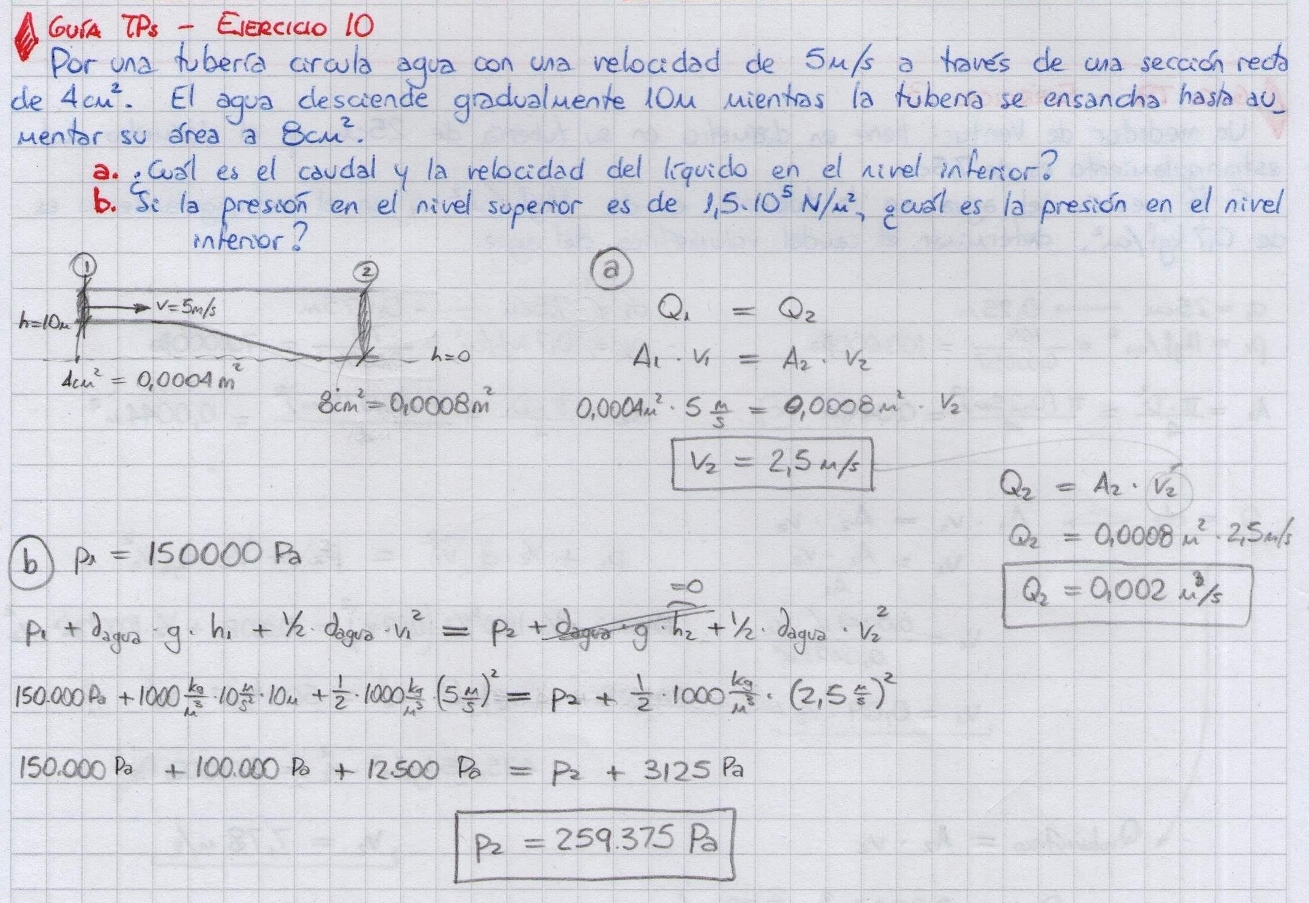 GUÍA TPs - EJERCICIO 10
Por una tubería circula agua con una velocidad de 5m/s a través de una sección recta
de 4cm². El agua desciende gradualmente 10m mientras la tubería se ensancha hasta au_
mentar su área a 8cm².
a. ¿Cuál es el caudal y la velocidad del líquido en el nivel inferior?
b. Si la presión en el nivel superior es de 1,5.10⁵ N/m², ¿cuál es la presión en el nivel
inferior?
1 2
v=5m/s
h=10m
h=0
4cm² = 0,0004 m²
8cm² = 0,0008m²
a
Q₁ = Q₂
A₁ · v₁ = A₂ · v₂
0,0004m² · 5 m/s = 0,0008m² · v₂
v₂ = 2,5 m/s
Q₂ = A₂ · v₂
Q₂ = 0,0008 m² · 2,5m/s
Q₂ = 0,002 m³/s
b p₁ = 150000 Pa
=0
p₁ + dagua · g · h₁ + 1/2 · dagua · v₁² = p₂ + dagua · g · h₂ + 1/2 · dagua · v₂²
150.000 Pa + 1000 kg/m³ · 10 m/s² · 10m + 1/2 · 1000 kg/m³ (5 m/s)² = p₂ + 1/2 · 1000 kg/m³ · (2,5 m/s)²
150.000 Pa + 100.000 Pa + 12.500 Pa = p₂ + 3125 Pa
p₂ = 259.375 Pa